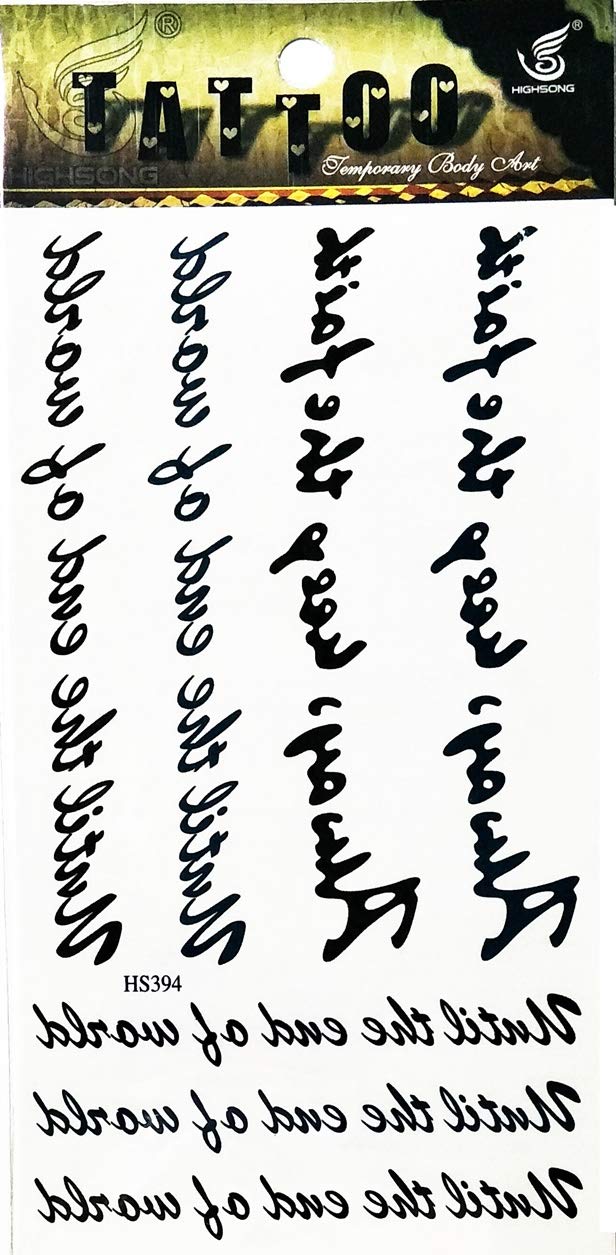 ®
HIGHSONG
®
HIGHSONG
TATTOO
Temporary Body Art
Until the end of world
Until the end of world
Always keep the faith
Always keep the faith
HS394
Until the end of world
Until the end of world
Until the end of world